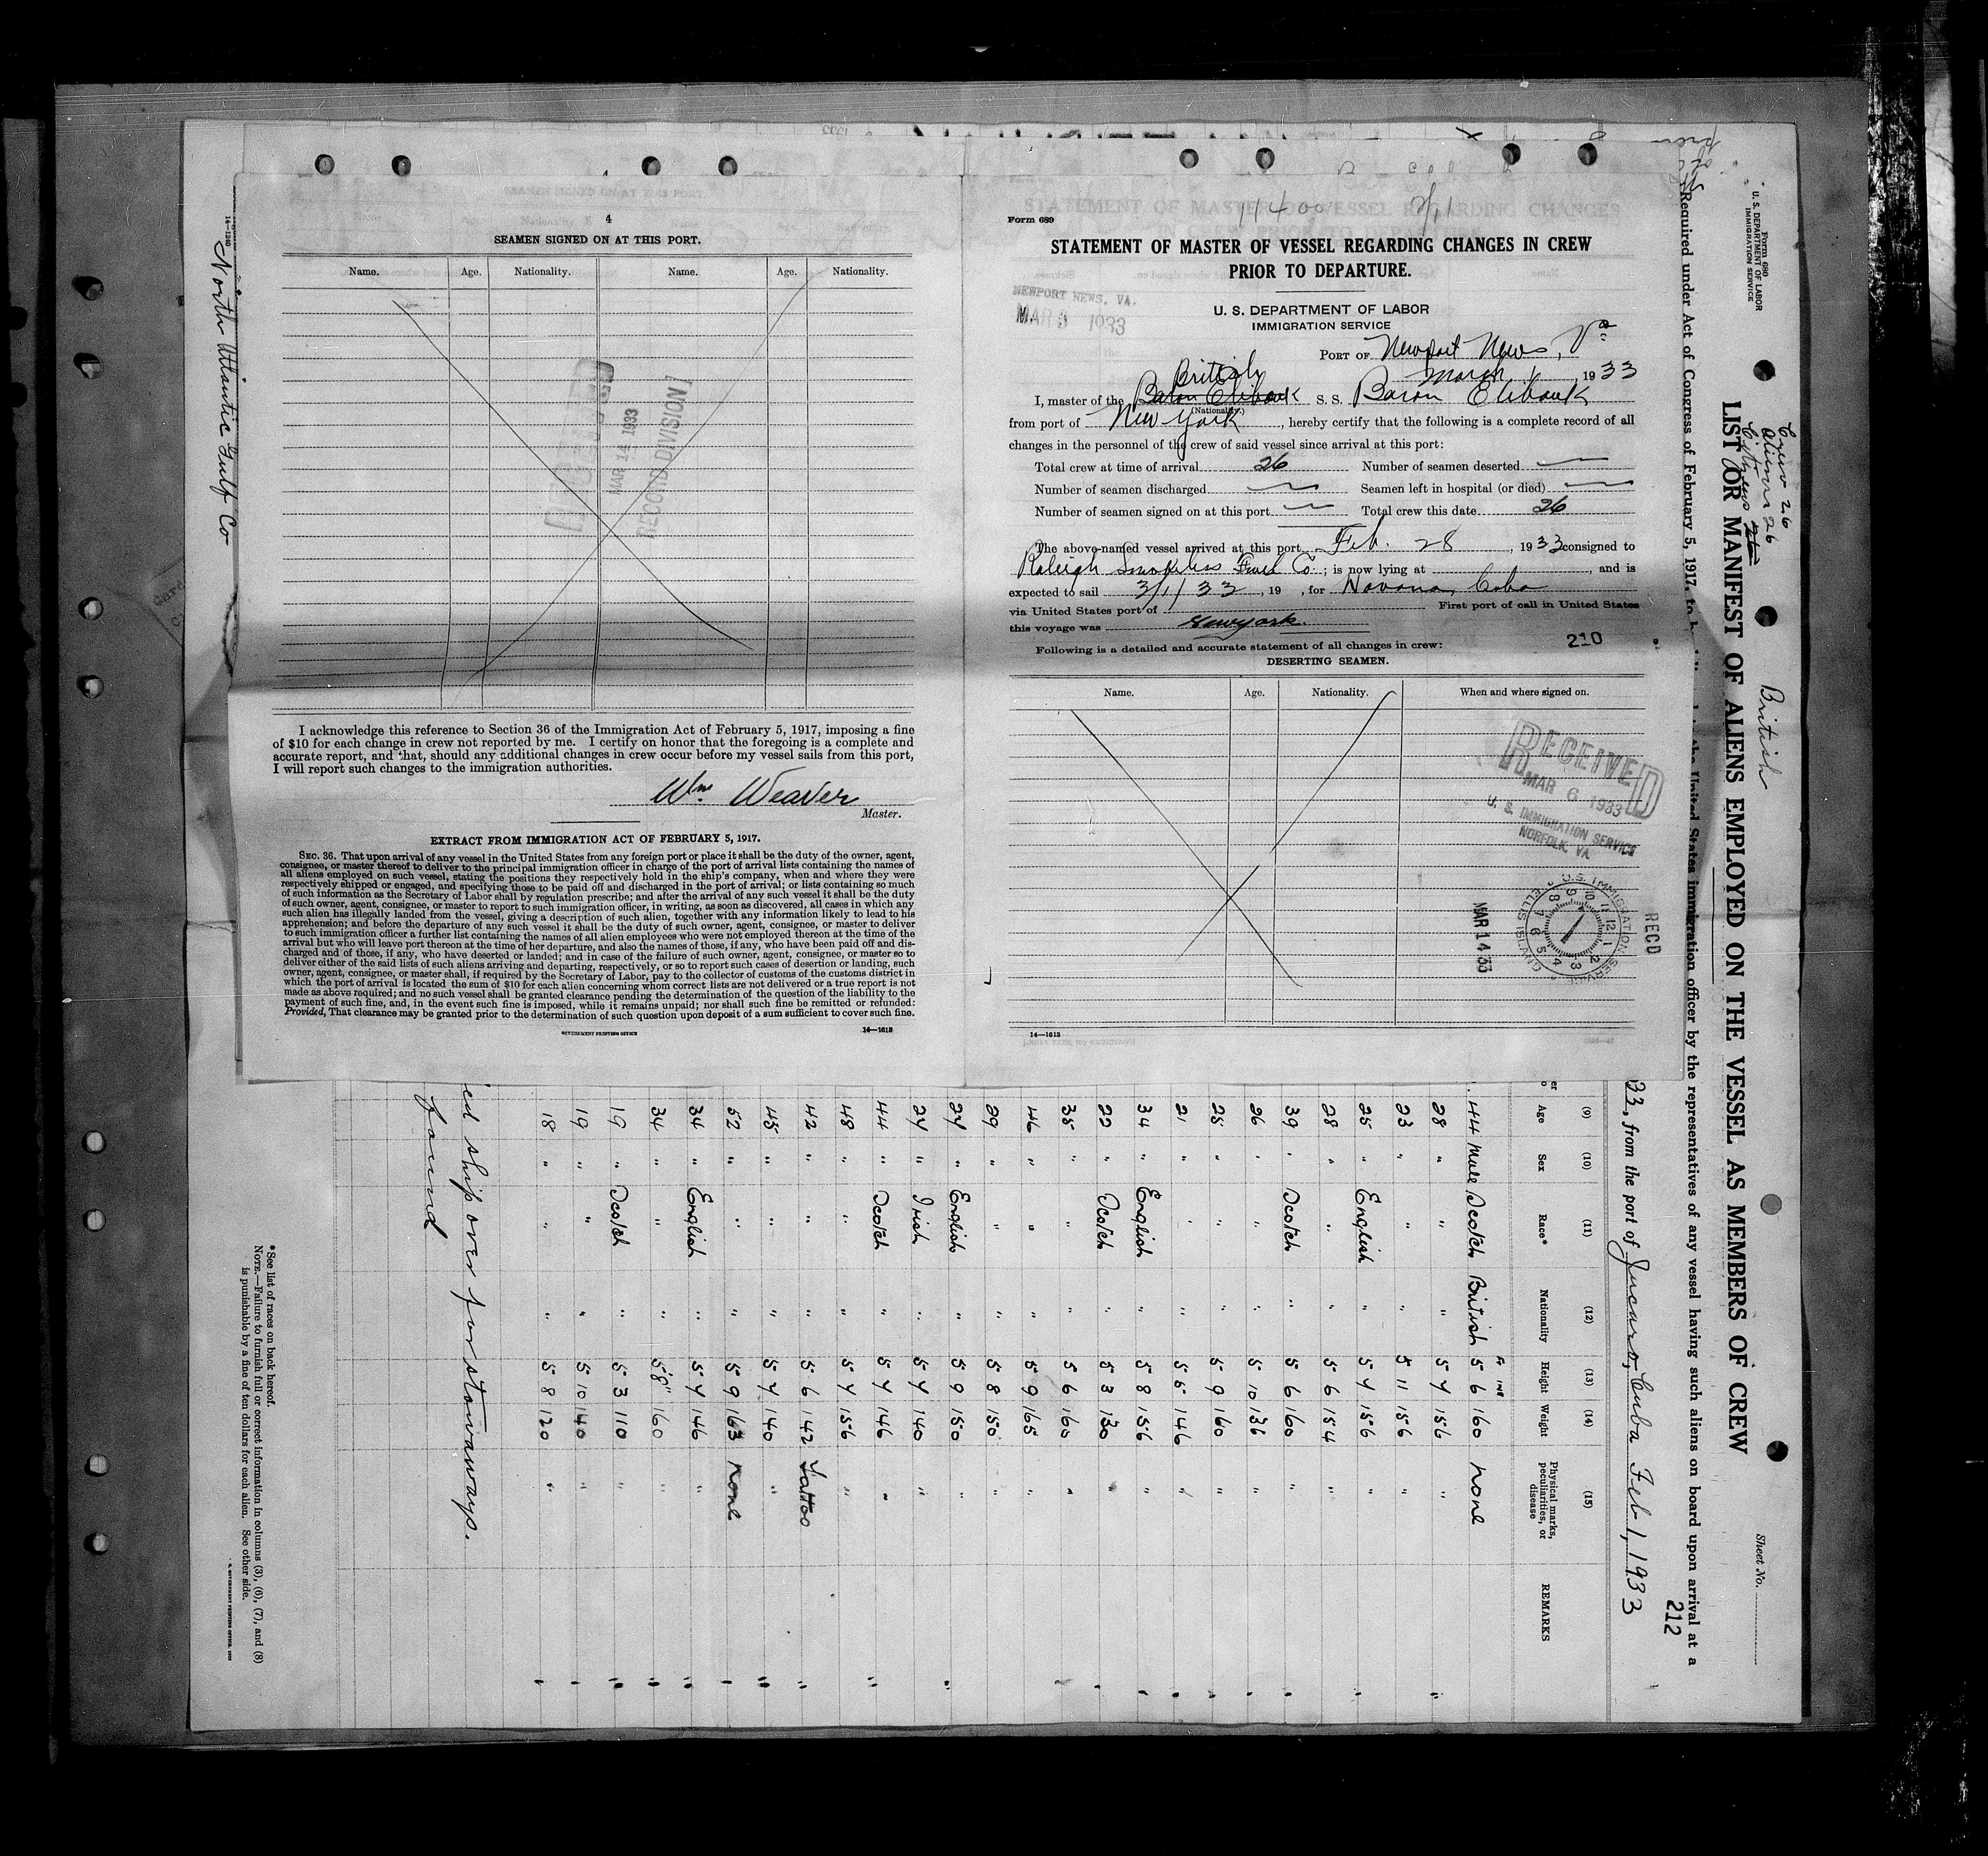 4
SEAMEN SIGNED ON AT THIS PORT.
Name. Age. Nationality. Name. Age. Nationality.
RECEIVED
MAR 14 1933
RECORD DIVISION
I acknowledge this reference to Section 36 of the Immigration Act of February 5, 1917, imposing a fine
of $10 for each change in crew not reported by me. I certify on honor that the foregoing is a complete and
accurate report, and that, should any additional changes in crew occur before my vessel sails from this port,
I will report such changes to the immigration authorities.
Wm. Weaver
Master.
EXTRACT FROM IMMIGRATION ACT OF FEBRUARY 5, 1917.
SEC. 36. That upon arrival of any vessel in the United States from any foreign port or place it shall be the duty of the owner, agent,
consignee, or master thereof to deliver to the principal immigration officer in charge of the port of arrival lists containing the names of
all aliens employed on such vessel, stating the positions they respectively hold in the ship's company, when and where they were
respectively shipped or engaged, and specifying those to be paid off and discharged in the port of arrival; or lists containing so much
of such information as the Secretary of Labor shall by regulation prescribe; and after the arrival of any such vessel it shall be the duty
of such owner, agent, consignee, or master to report to such immigration officer, in writing, as soon as discovered, all cases in which any
such alien has illegally landed from the vessel, giving a description of such alien, together with any information likely to lead to his
apprehension; and before the departure of any such vessel it shall be the duty of such owner, agent, consignee, or master to deliver
to such immigration officer a further list containing the names of all alien employees who were not employed thereon at the time of the
arrival but who will leave port thereon at the time of her departure, and also the names of those, if any, who have been paid off and dis-
charged and of those, if any, who have deserted or landed; and in case of the failure of such owner, agent, consignee, or master so to
deliver either of the said lists of such aliens arriving and departing, respectively, or so to report such cases of desertion or landing, such
owner, agent, consignee, or master shall, if required by the Secretary of Labor, pay to the collector of customs of the customs district in
which the port of arrival is located the sum of $10 for each alien concerning whom correct lists are not delivered or a true report is not
made as above required; and no such vessel shall be granted clearance pending the determination of the question of the liability to the
payment of such fine, and, in the event such fine is imposed, while it remains unpaid; nor shall such fine be remitted or refunded:
Provided, That clearance may be granted prior to the determination of such question upon deposit of a sum sufficient to cover such fine.
GOVERNMENT PRINTING OFFICE 14—1613
Form 689
11400
STATEMENT OF MASTER OF VESSEL REGARDING CHANGES IN CREW
PRIOR TO DEPARTURE.
NEWPORT NEWS, VA.
MAR 3 1933
U. S. DEPARTMENT OF LABOR
IMMIGRATION SERVICE
PORT OF Newport News, Va.
March 1, 1933
British
I, master of the Baron Elibank S. S. Baron Elibank
(Nationality.)
from port of New York, hereby certify that the following is a complete record of all
changes in the personnel of the crew of said vessel since arrival at this port:
Total crew at time of arrival 26 Number of seamen deserted
Number of seamen discharged Seamen left in hospital (or died)
Number of seamen signed on at this port Total crew this date 26
The above-named vessel arrived at this port Feb. 28, 1933 consigned to
Raleigh Smokeless Fuel Co.; is now lying at , and is
expected to sail 3/1/33, 19 , for Havana, Cuba
via United States port of First port of call in United States
this voyage was New york.
Following is a detailed and accurate statement of all changes in crew:
210
DESERTING SEAMEN.
Name. Age. Nationality. When and where signed on.
RECEIVED
MAR 6 1933
U. S. IMMIGRATION SERVICE
NORFOLK, VA
RECD
MAR 14 33
U.S. IMMIGRATION SERVICE
ELLIS ISLAND
14—1613
14—1240
North Atlantic Gulf Co
Form 680
U. S. DEPARTMENT OF LABOR
IMMIGRATION SERVICE
Crew 26
Aliens 26
British
Sheet No.
LIST OR MANIFEST OF ALIENS EMPLOYED ON THE VESSEL AS MEMBERS OF CREW
Required under Act of Congress of February 5, 1917, to the United States immigration officer by the representatives of any vessel having such aliens on board upon arrival at a
212
33, from the port of Jucaro, Cuba Feb 1, 1933
(9) (10) (11) (12) (13) (14) (15)
Age Sex Race* Nationality Height Weight Physical marks, peculiarities, or disease REMARKS
44 Male Scotch British 5 6 160 None
28 " " " 5 4 156 "
23 " " " 5 11 156 "
25 " English " 5 4 156 "
28 " " " 5 6 154 "
39 " Scotch " 5 6 160 "
26 " " " 5 10 136 "
25 " " " 5 9 160 "
21 " " " 5 5 146 "
34 " English " 5 8 156 "
22 " Scotch " 5 3 130 "
35 " " " 5 6 160 "
46 " " " 5 9 165 "
29 " " " 5 8 150 "
24 " English " 5 9 150 "
24 " Irish " 5 4 140 "
44 " Scotch " 5 4 146 "
48 " " " 5 4 156 "
42 " " " 5 6 142 Tattoo
45 " " " 5 4 140 "
52 " " " 5 9 163 None
34 " English " 5 4 146 "
34 " " " 5 8 160 "
19 " Scotch " 5 3 110 "
19 " " " 5 10 140 "
18 " " " 5 8 120 "
ed ship over for stowaways.
found
*See list of races on back hereof.
NOTE.—Failure to furnish full or correct information in columns (3), (6), (7), and (8)
is punishable by a fine of ten dollars for each alien. See other side.